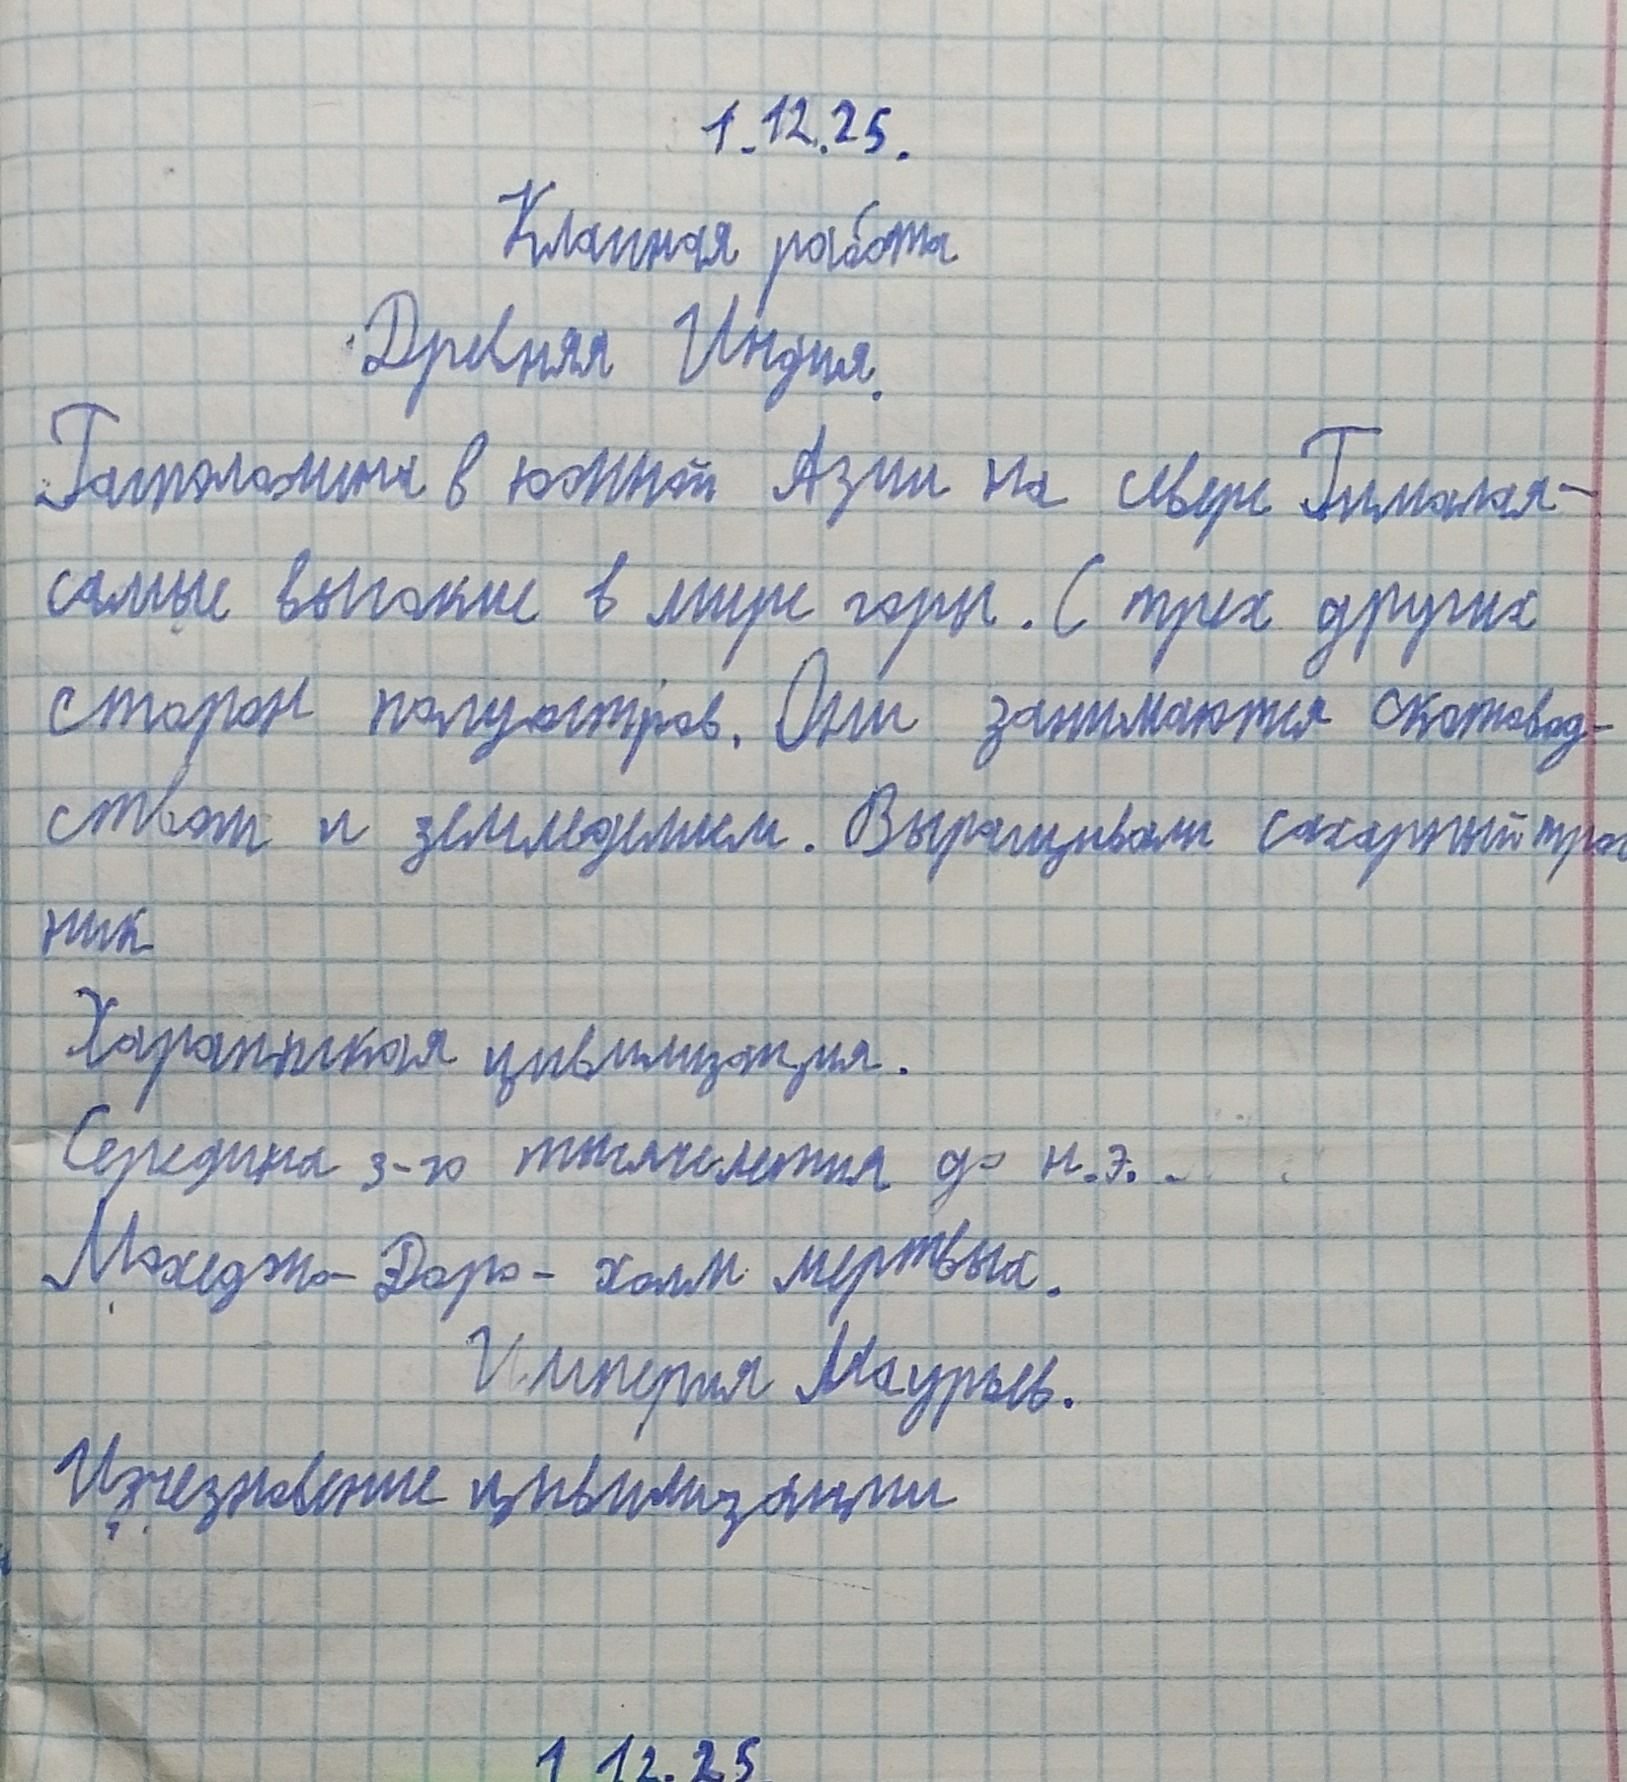 1.12.25.
Классная работа
Древняя Индия.
в южной Азии на севере Гималая-
самые высокие в мире горы. С трех других
сторон полуостров. Они занимаются скотовод-
ством и земледелием. Выращивали сахарный трос
ник
Хараппская цивилизация.
Середина 3-го тысячелетия до н.э..
Мохеджо-Даро- холм мертвых.
Империя Маурьев.
Исчезновение цивилизации
1 12.25